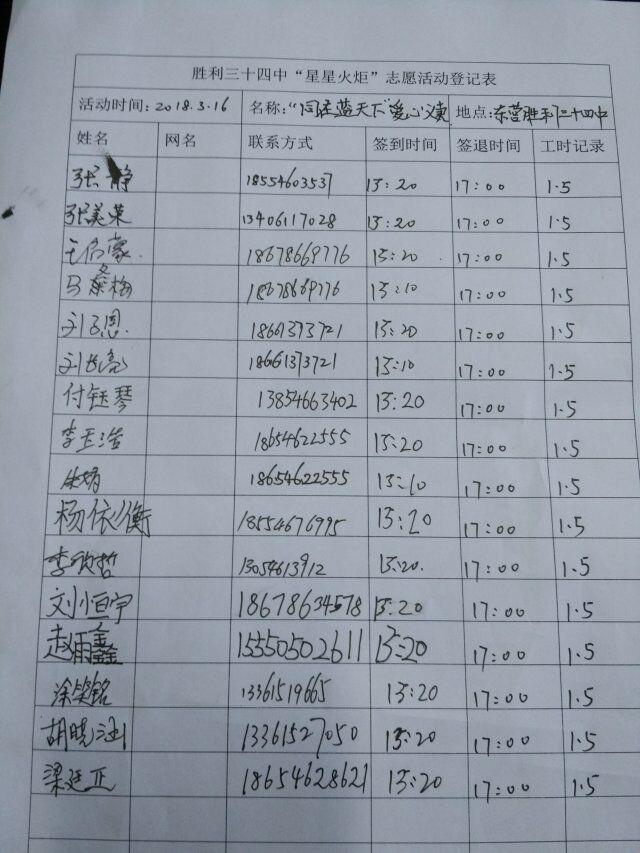 胜利三十四中“星星火炬”志愿活动登记表
活动时间：2018.3.16 名称：“同在蓝天下”爱心义卖 地点：东营胜利三十四中
姓名 网名 联系方式 签到时间 签退时间 工时记录
张静 18554603537 15:20 17:00 1.5
张美荣 13406117028 15:20 17:00 1.5
18678669776 15:20 17:00 1.5
马桑梅 18678669776 15:10 17:00 1.5
18661373721 15:20 17:00 1.5
18661373721 15:10 17:00 1.5
付钰琴 13854663402 15:20 17:00 1.5
李玉浩 18654622555 15:20 17:00 1.5
18654622555 15:10 17:00 1.5
杨依衡 18554676995 15:20 17:00 1.5
李欣哲 13054613912 15:20. 17:00 1.5
刘恒宇 18678634578 15:20 17:00 1.5
赵炳鑫 15550502611 15:20 17:00 1.5
涂铭 13361519665 15:20 17:00 1.5
胡晓涵 13361527050 15:20 17:00 1.5
梁廷正 18654628621 15:20 17:00 1.5